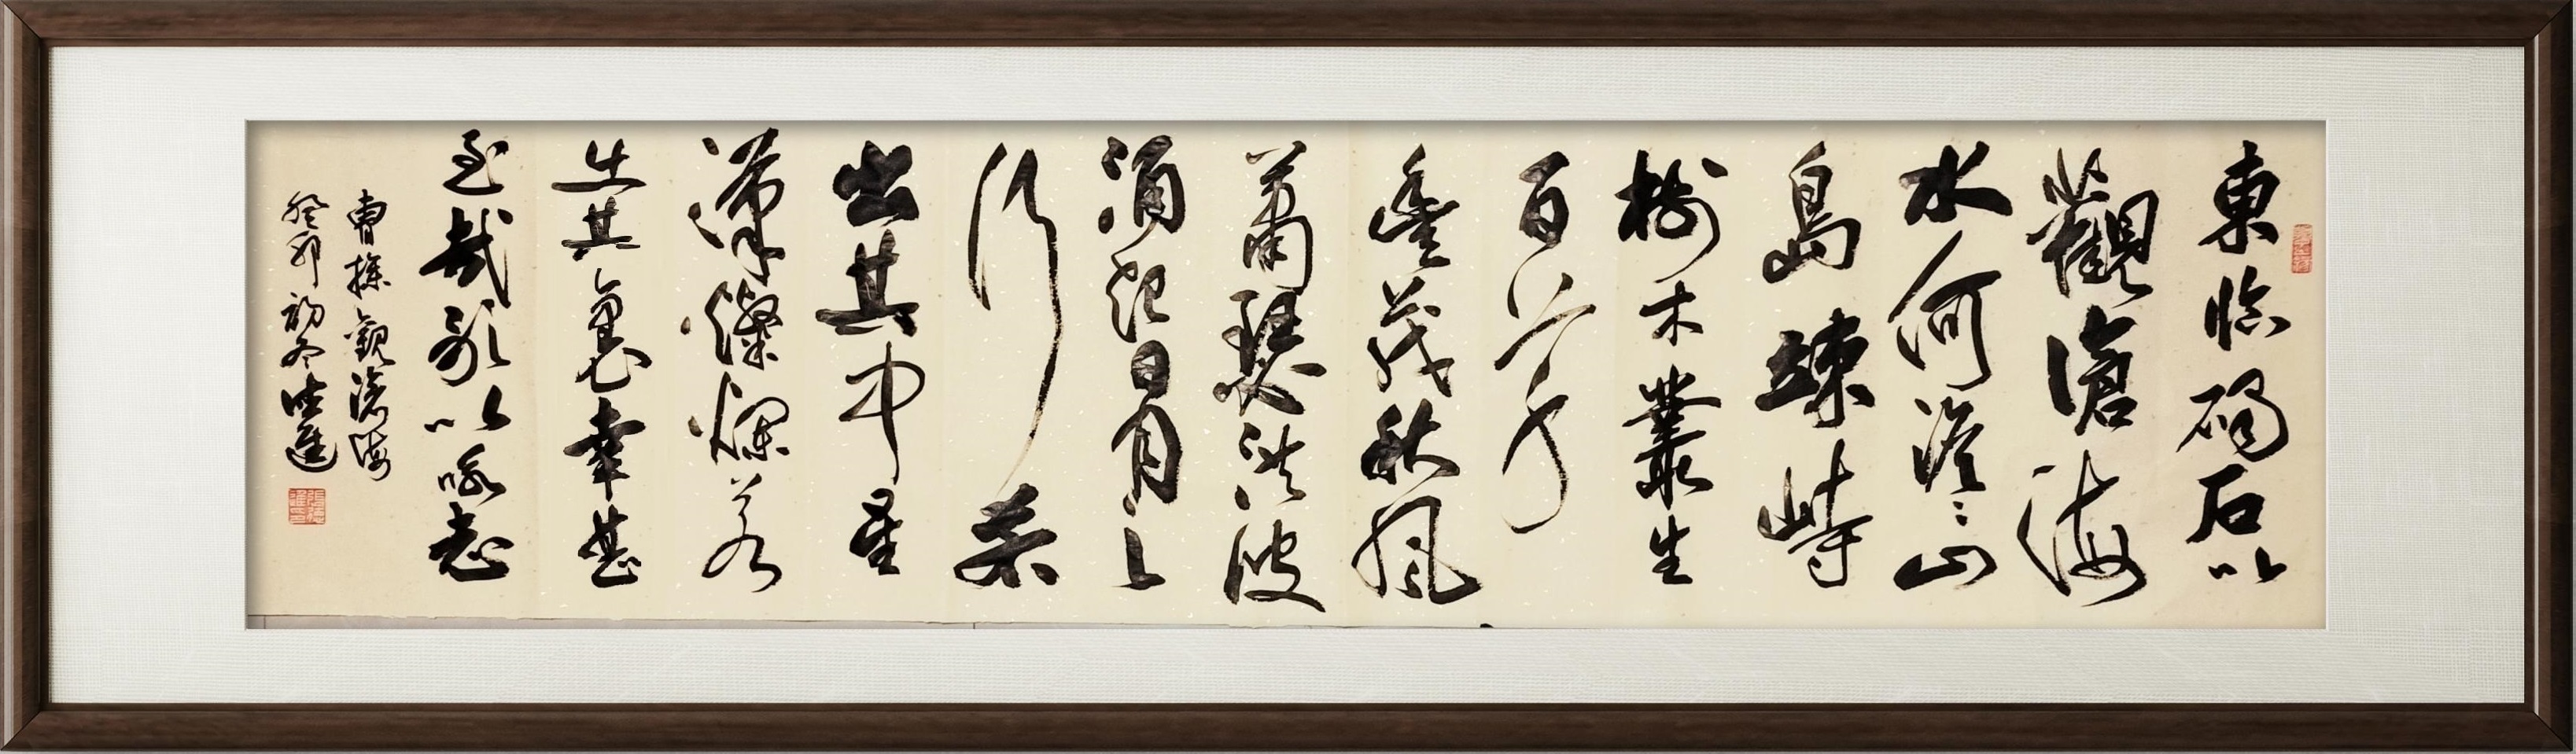 東臨碣石以
觀滄海
水何澹〻山
島竦峙
樹木叢生
百草
豐茂秋風
蕭瑟洪波
涌起日月之
行若
出其中星
漢燦爛若
出其裏幸甚
至哉歌以咏志
曹操觀滄海
癸卯初冬進